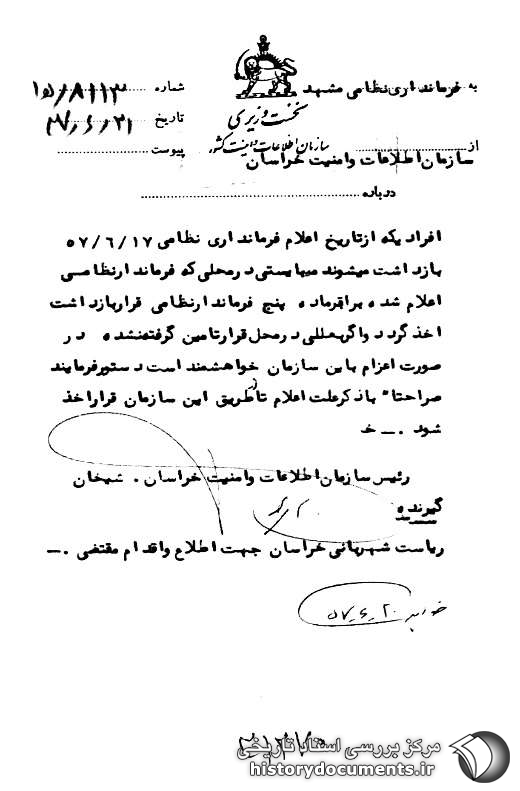 به فرمانداری نظامی مشهد
شماره ۱۵/۸۱۱۳
نخست وزیری
تاریخ ۳۷/۶/۲۱
از سازمان اطلاعات و امنیت کشور
پیوست
سازمان اطلاعات وامنیت خراسان
درباره
افراد یکه ازتاریخ اعلام فرمانداری نظامی ۵۷/۶/۱۷
بازداشت میشوند میبایستی درمحلی که فرماندارنظامی
اعلام شده برابرماده پنج فرماندارنظامی قراربازداشت
اخذ گردد واگربعللی درمحل قرارتامین گرفته نشده در
صورت اعزام باین سازمان خواهشمند است دستورفرمایند
صراحتا" باذکرعلت اعلام تا ازطریق این سازمان قراراخذ
شود .ــ خ
رئیس سازمان اطلاعات وامنیت خراسان . شیخان
گیرنده
ریاست شهربانی خراسان جهت اطلاع واقدام مقتضی .ــ
۵۷٫۶٫۲۰
مرکز بررسی اسناد تاریخی
historydocuments.ir